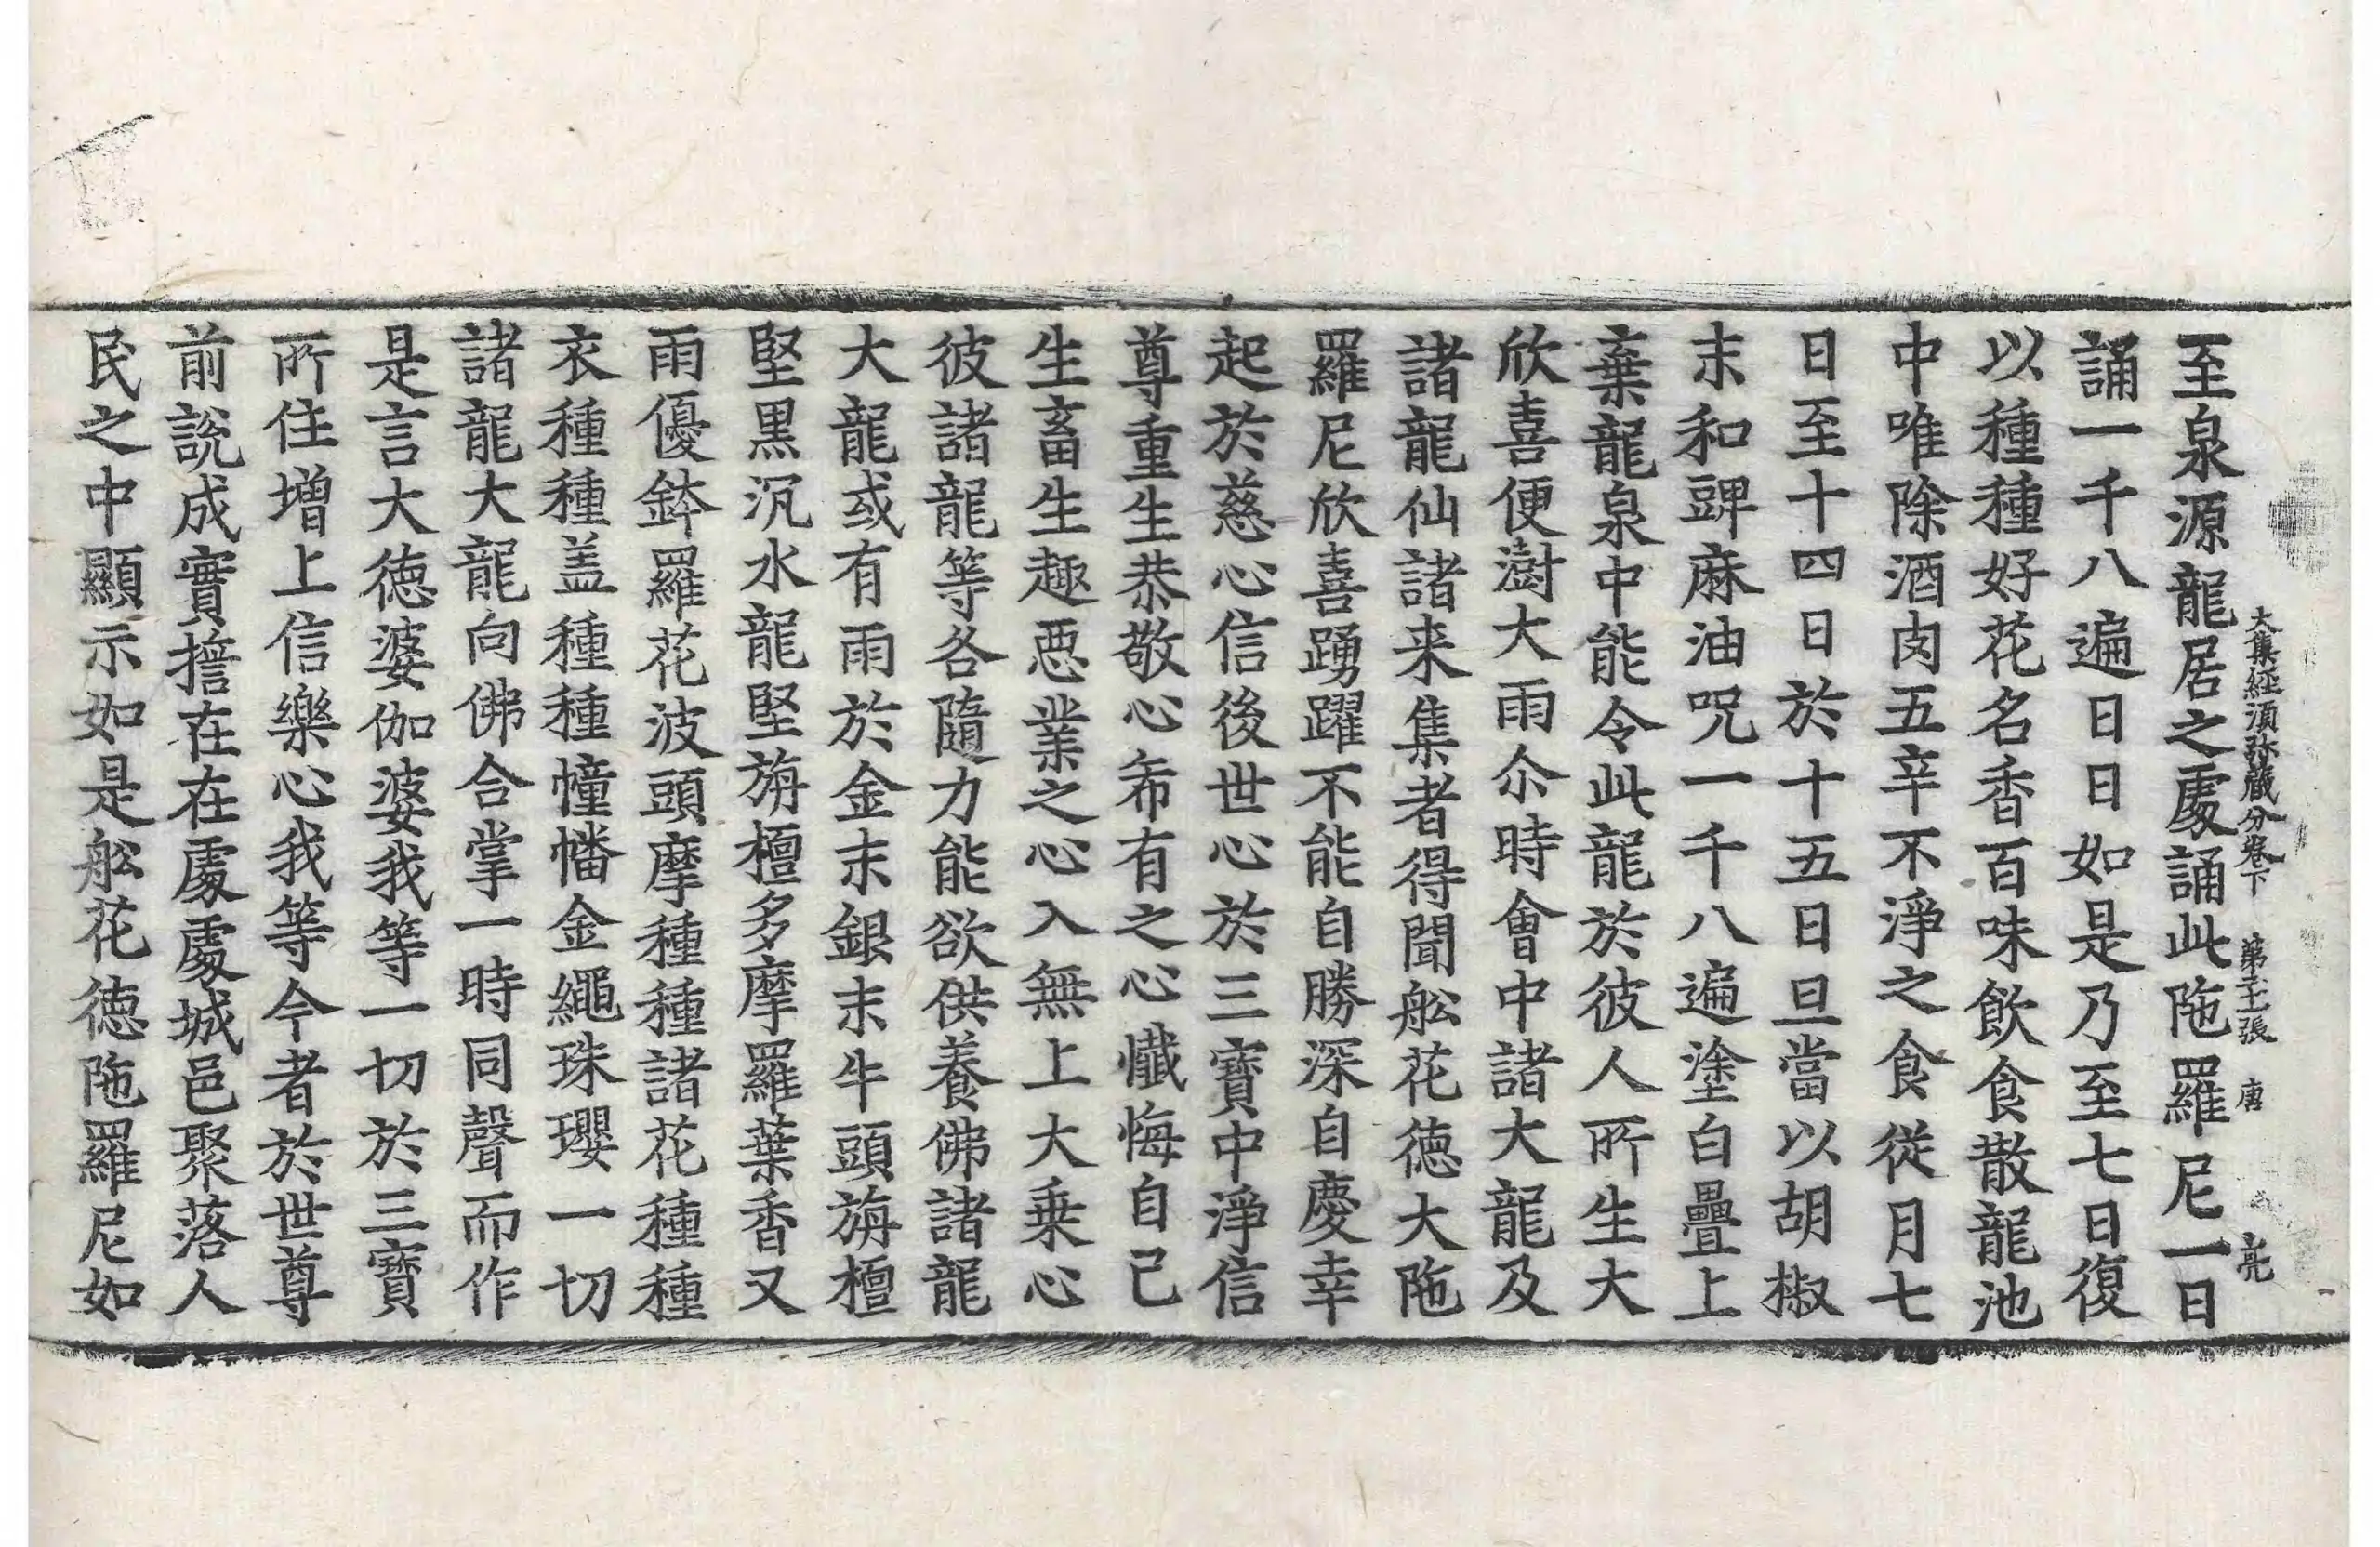 大集經湏弥藏分卷下 第二十一張 唐 亮
至泉源龍居之處誦此陁羅尼一日
誦一千八遍日日如是乃至七日復
以種種好花名香百味飲食散龍池
中唯除酒肉五辛不淨之食從月七
日至十四日於十五日旦當以胡椒
末和豍麻油呪一千八遍塗白疊上
棄龍泉中能令此龍於彼人所生大
欣喜便澍大雨尒時會中諸大龍及
諸龍仙諸来集者得聞舩花德大陁
羅尼欣喜踊躍不能自勝深自慶幸
起於慈心信後世心於三寶中淨信
尊重生恭敬心希有之心懺悔自己
生畜生趣惡業之心入無上大乗心
彼諸龍等各隨力能欲供養佛諸龍
大龍或有雨於金末銀末牛頭旃檀
堅黒沉水龍堅旃檀多摩羅葉香又
雨優鉢羅花波頭摩種種諸花種種
衣種種盖種種幢幡金繩珠瓔一切
諸龍大龍向佛合掌一時同聲而作
是言大德婆伽婆我等一切於三寶
所住增上信樂心我等今者於世尊
前說成實擔在在處處城邑聚落人
民之中顯示如是舩花德陁羅尼如